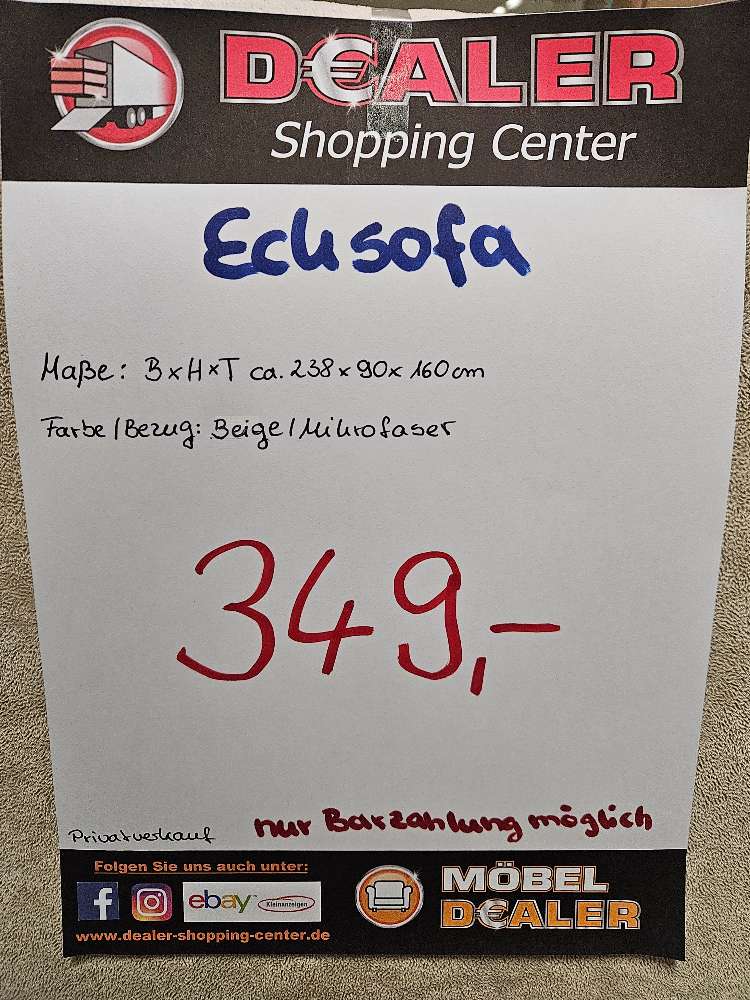 D€ALER
Shopping Center
Ecksofa
Maße: B x H x T ca. 238 x 90 x 160 cm
Farbe/Bezug: Beige/Mikrofaser
349,-
Privatverkauf nur Barzahlung möglich
Folgen Sie uns auch unter:
ebay Kleinanzeigen
www.dealer-shopping-center.de
MÖBEL
D€ALER